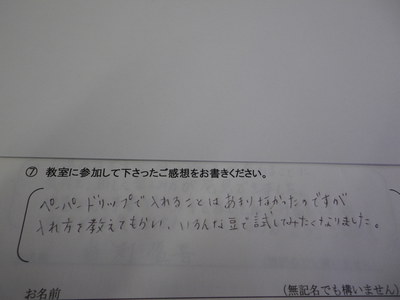 ⑦ 教室に参加して下さったご感想をお書きください。
ペーパードリップで入れることはあまりなかったのですが
入れ方を教えてもらい、いろんな豆で試してみたくなりました。
お名前 (無記名でも構いません)